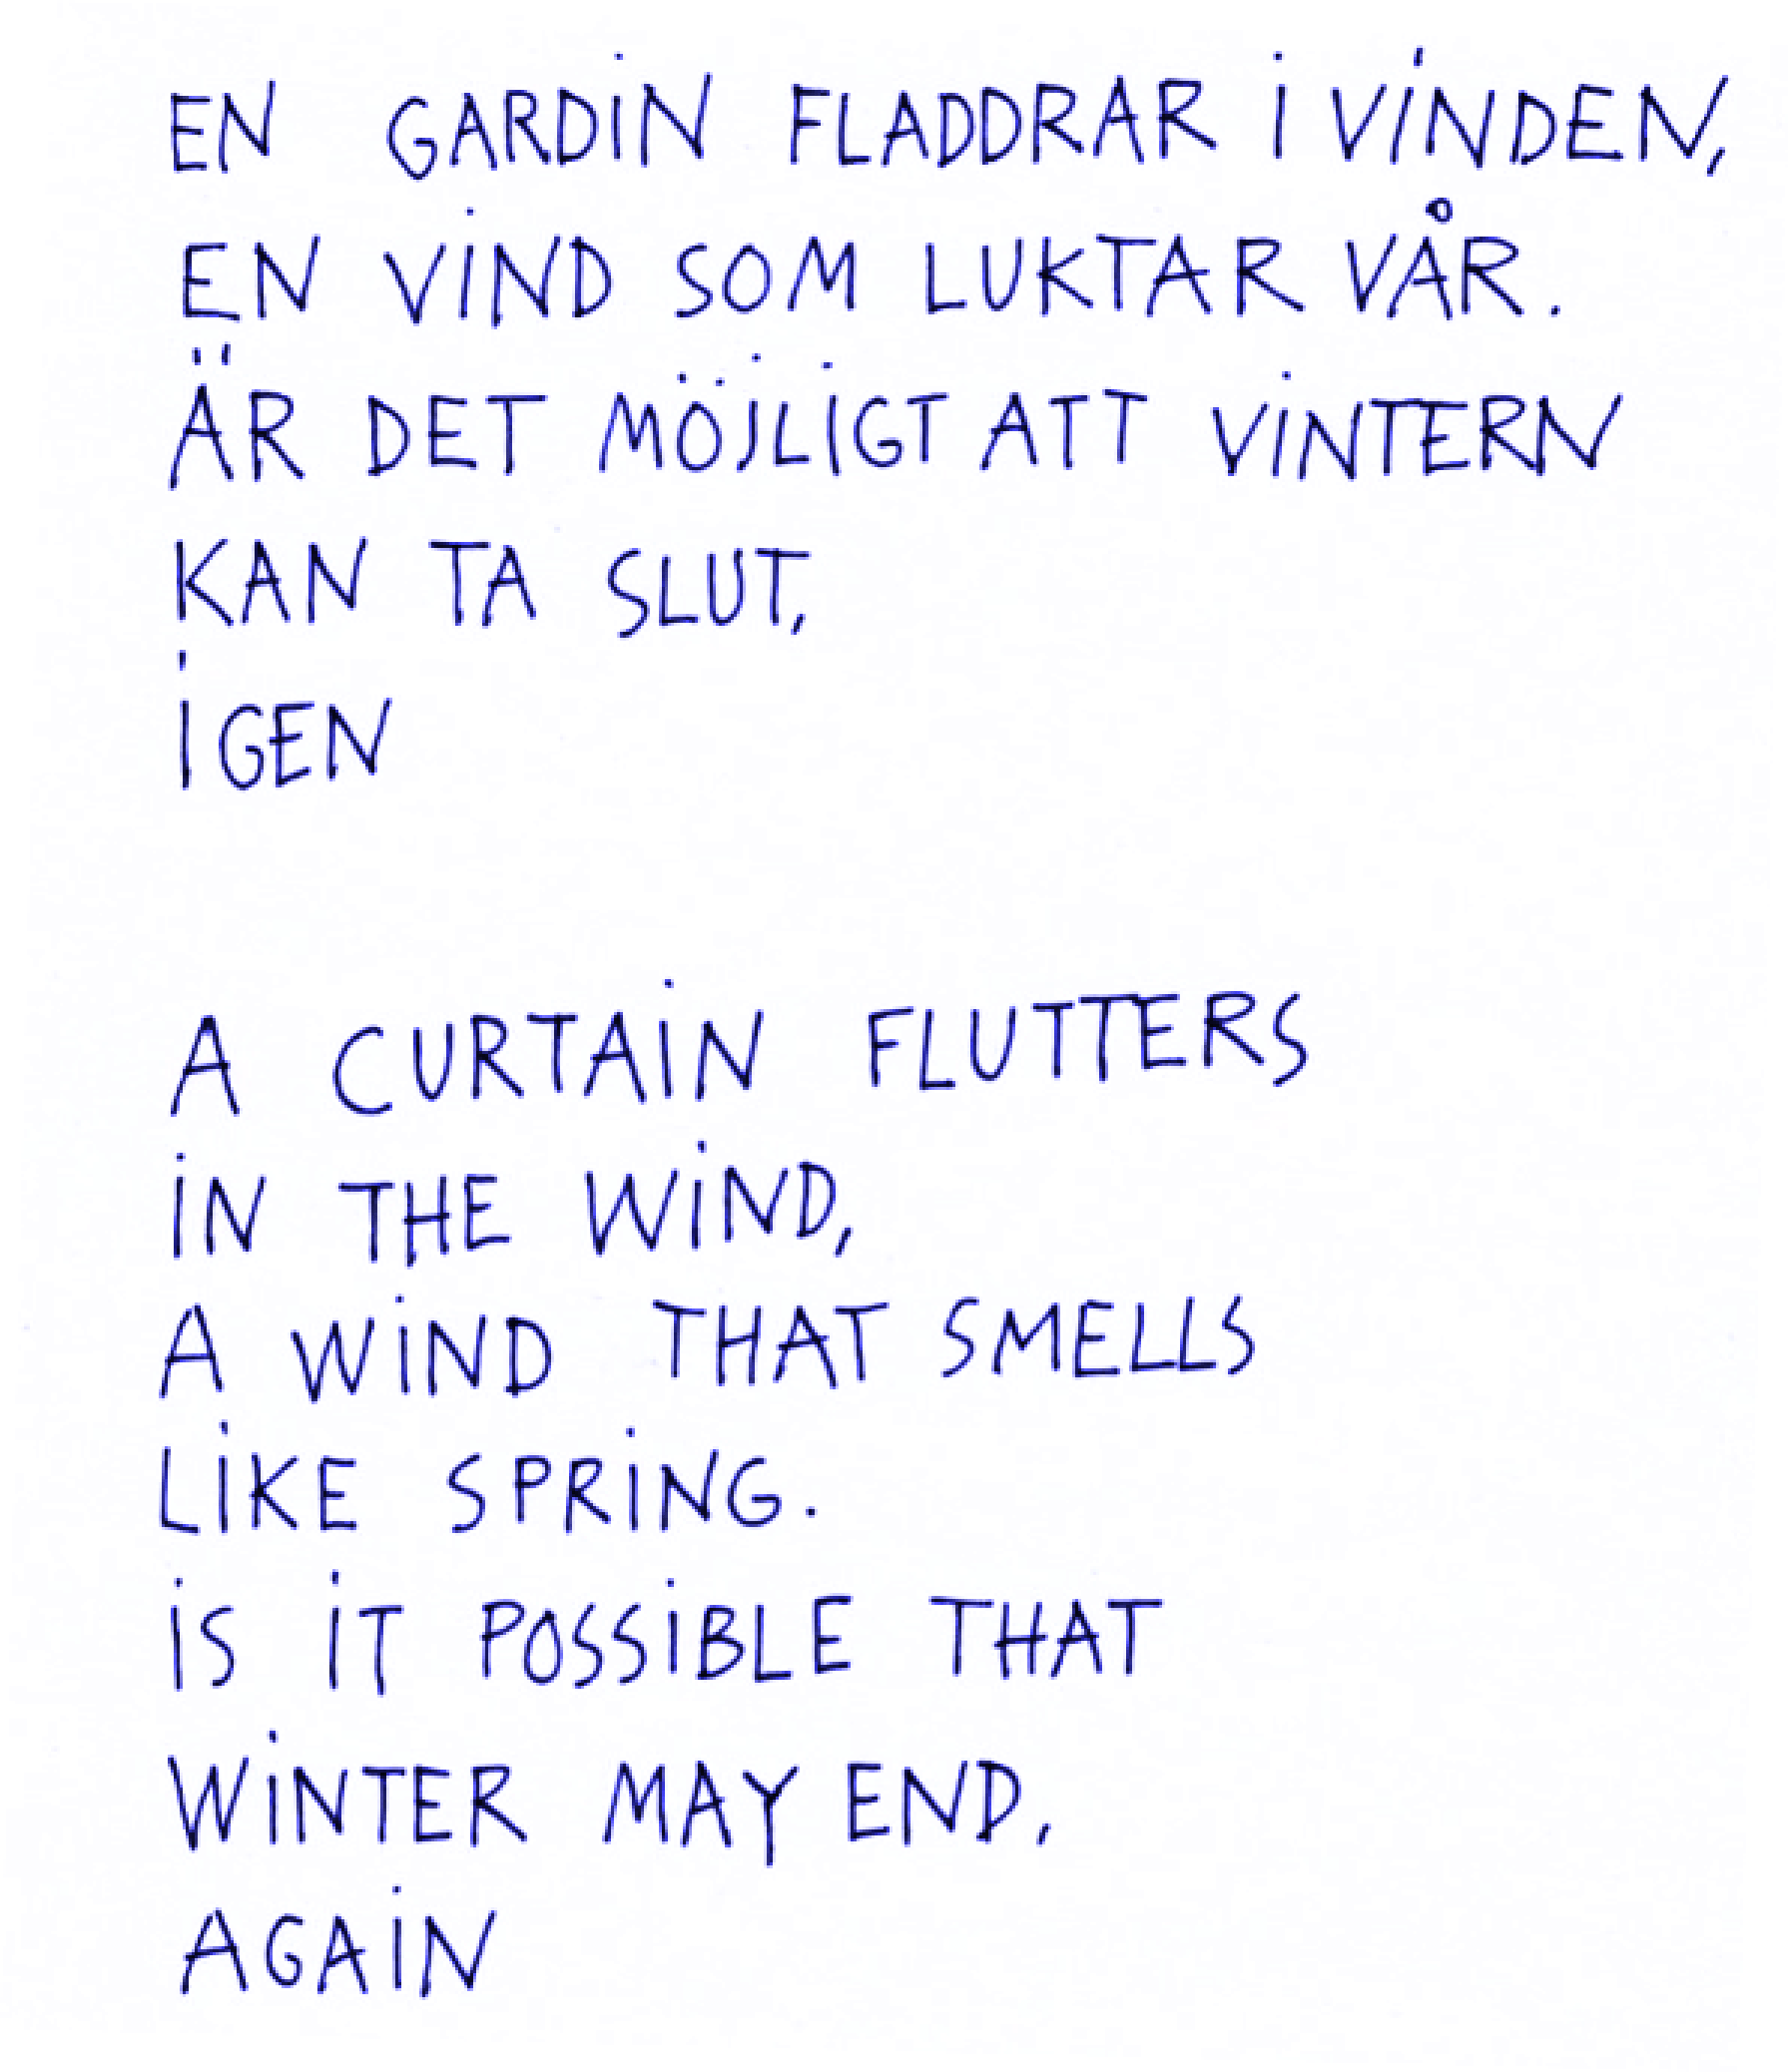 EN GARDiN FLADDRAR i ViNDEN,
EN ViND SOM LUKTAR VÅR.
ÄR DET MÖJLiGT ATT ViNTERN
KAN TA SLUT,
iGEN
A CURTAiN FLUTTERS
iN THE WiND,
A WiND THAT SMELLS
LiKE SPRiNG.
iS iT POSSiBLE THAT
WiNTER MAY END,
AGAiN